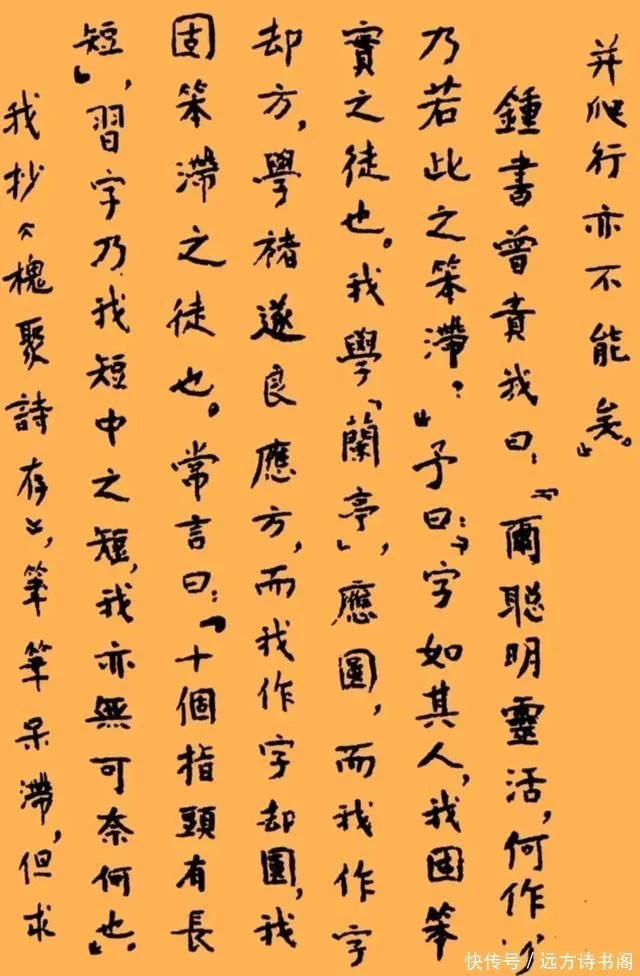 并爬行亦不能矣。」
鍾書曾責我曰：「爾聰明靈活，何作
乃若此之笨滯？」予曰：「字如其人，我固笨
實之徒也。我學「蘭亭」，應圓，而我作字
却方，學褚遂良應方，而我作字却圓，我
固笨滯之徒也。常言曰：「十個指頭有長
短」，習字乃我短中之短，我亦無可奈何也。」
我抄《槐聚詩存》，筆筆呆滯，但求
快传号/远方诗书阁